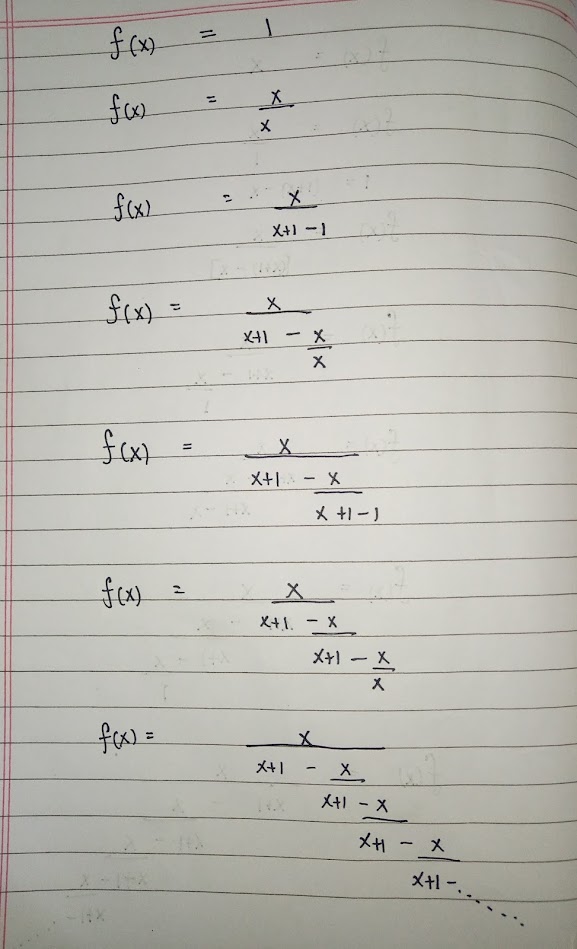 f(x) = 1
f(x) = x
x
f(x) = x
x+1 - 1
f(x) = x
x+1 - x
x
f(x) = x
x+1 - x
x+1-1
f(x) = x
x+1 - x
x+1 - x
x
f(x) = x
x+1 - x
x+1 - x
x+1 - x
x+1 - .......